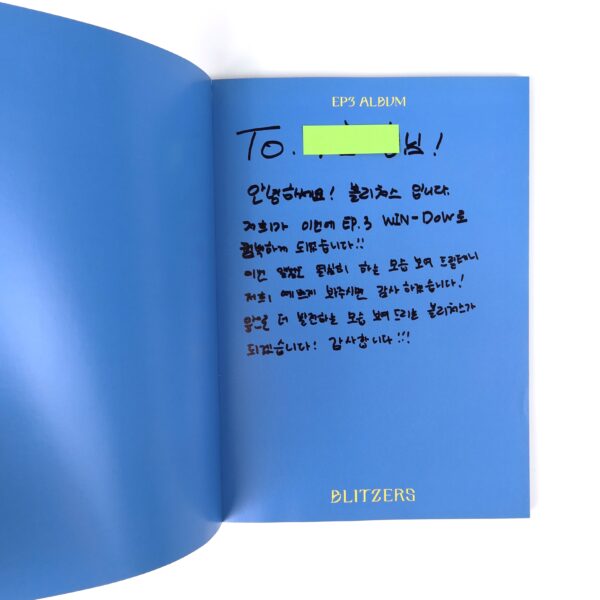 EP3 ALBUM
To. 님!
안녕하세요! 블리처스 입니다.
저희가 이번에 EP.3 WIN-DOW로
컴백하게 되었습니다!!
이번 앨범도 열심히 하는 모습 보여 드릴테니
저희 예쁘게 봐주시면 감사 하겠습니다!
앞으로 더 발전하는 모습 보여 드리는 블리처스가
되겠습니다! 감사합니다!!!
BLITZERS